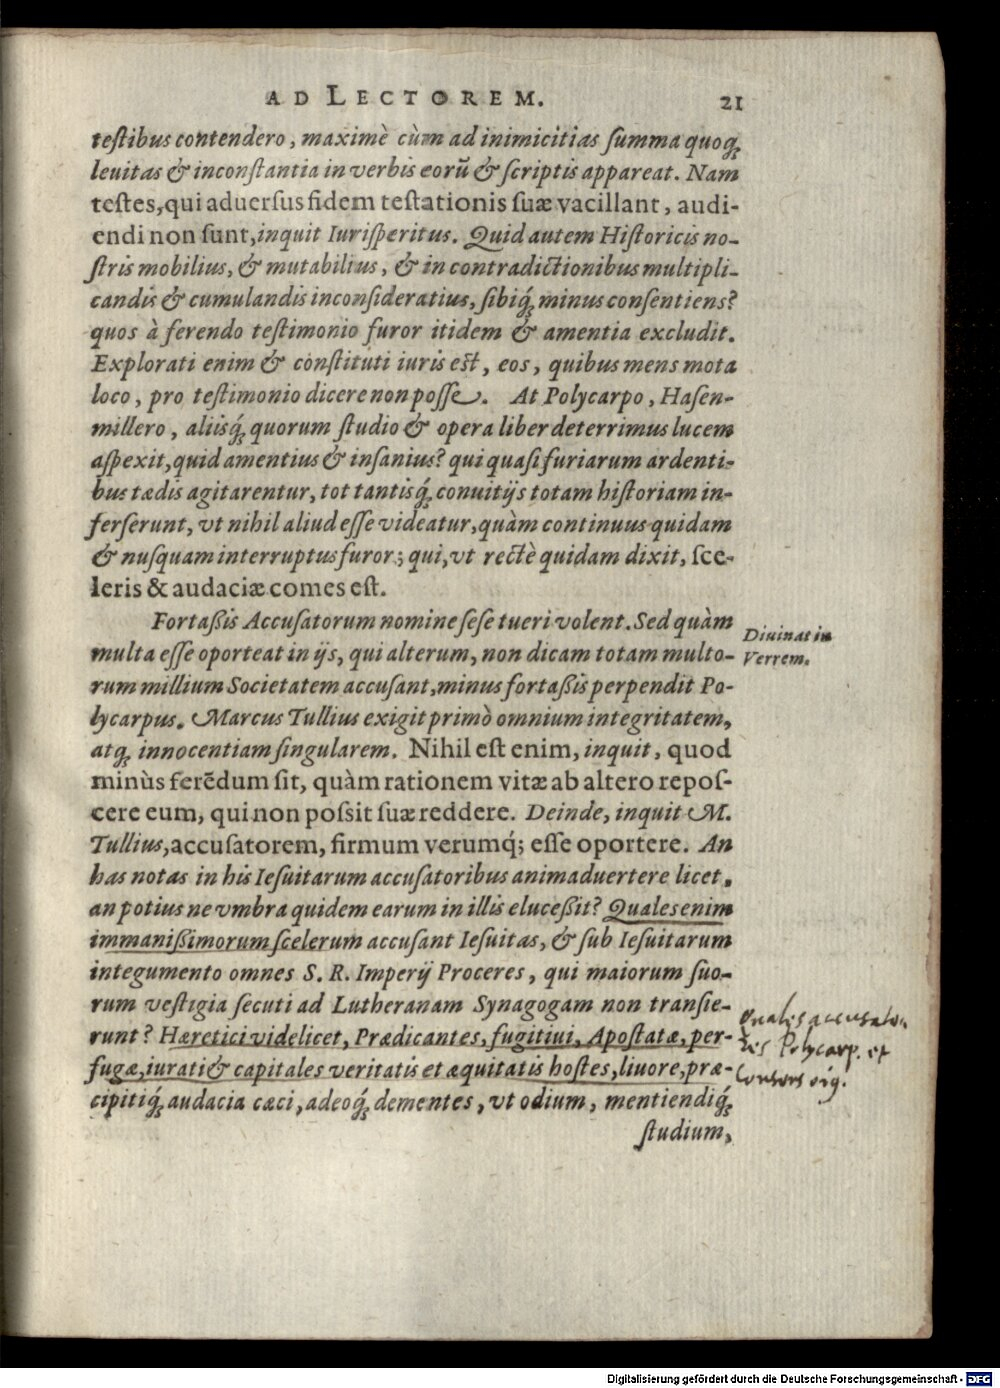 AD LECTOREM. 21
testibus contendero, maximè cùm ad inimicitias summa quoq́;
leuitas & inconstantia in verbis eorũ & scriptis appareat. Nam
testes, qui aduersus fidem testationis suæ vacillant, audi-
endi non sunt, inquit Iurisperitus. Quid autem Historicis no-
stris mobilius, & mutabilius, & in contradictionibus multipli-
candis & cumulandis inconsideratius, sibiq́; minus consentiens?
quos à ferendo testimonio furor itidem & amentia excludit.
Explorati enim & constituti iuris est, eos, quibus mens mota
loco, pro testimonio dicere non posse. At Polycarpo, Hasen-
millero, aliisq́; quorum studio & opera liber deterrimus lucem
aspexit, quid amentius & insanius? qui quasi furiarum ardenti-
bus tædis agitarentur, tot tantisq́; conuitijs totam historiam in-
ferserunt, vt nihil aliud esse videatur, quàm continuus quidam
& nusquam interruptus furor; qui, vt rectè quidam dixit, sce-
leris & audaciæ comes est.
Fortaßis Accusatorum nomine sese tueri volent. Sed quàm
Diuinat in
multa esse oporteat in ijs, qui alterum, non dicam totam multo-
Verrem.
rum millium Societatem accusant, minus fortaßis perpendit Po-
lycarpus. Marcus Tullius exigit primò omnium integritatem,
atq; innocentiam singularem. Nihil est enim, inquit, quod
minùs ferẽdum sit, quàm rationem vitæ ab altero repos-
cere eum, qui non possit suæ reddere. Deinde, inquit M.
Tullius, accusatorem, firmum verumq́; esse oportere. An
has notas in his Iesuitarum accusatoribus animaduertere licet,
an potius ne vmbra quidem earum in illis eluceßit? Quales enim
immanißimorum scelerum accusant Iesuitas, & sub Iesuitarum
integumento omnes S. R. Imperij Proceres, qui maiorum suo-
rum vestigia secuti ad Lutheranam Synagogam non transie-
runt? Hæretici videlicet, Prædicantes, fugitiui, Apostatæ, per-
fugæ, iurati & capitales veritatis et æquitatis hostes, liuore, præ-
cipitiq́; audacia cæci, adeoq́; dementes, vt odium, mentiendiq́;
studium,
Quales accusato-
res Polycarp. et
Digitalisierung gefördert durch die Deutsche Forschungsgemeinschaft - DFG